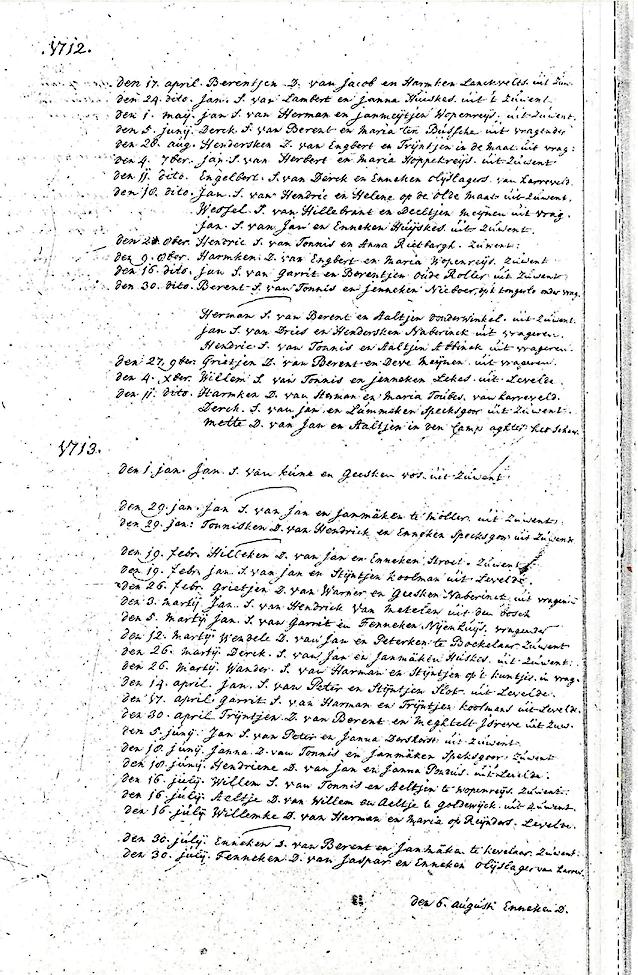 1712.
den 17. april. Berentjen D. van Jacob en Harmken Lanckveldt. uit Zuw.
den 24. dito. Jan. S. van Lambert en Janna Huiskes. uit 't Zuwent.
den 1. maij. jan S. van Herman en janmeijtjen Wopenreijs. uit Zuwent.
den 5. junij. Derck. S. van Berent en Maria ten Bussche. uit vragender
den 28. aug. Hendersken D. van Engbert en Trijntjen in de maat. uit vrag.
den 4. 7ber. jan S. van Herbert en maria Hoppenreijs. uit Zuwent
den 11. dito. Engelbert. S. van Derck en Enneken olijslagers. van Harreveld.
den 18. dito. Jan. S. van Hendric en Helene op de olde maat. uit Zuwent.
Wessel. S. van Hillebrant en Deeltjen meijnen uit vrag.
jan. S. van jan en Enneken Huijskes. uit Zuwent.
den 2. 8ber. Hendric S. van Tonnis en Anna Rietbergh. Zuwent.
den 9. 8ber. Harmken. D. van Engbert en Maria Wopenreijs. Zuwent
den 16. dito. jan S. van Garrit en Berentjen olde Roller uit Zuwent.
den 30. dito. Berent. S. van Tonnis en Jenneken Nieboer, op 't onder vrag.
Herman S. van Berent en Aaltjen Vonderwinkel. uit Zuwent.
jan S. van Dries en Hendersken Naberinck uit vrageren.
Hendric S. van Tonnis en Aaltjen Abbinck uit vrageren.
den 27. 9ber. Grietjen D. van Berent en Deve Meijnen. uit vrageren.
den 4. xber. Willem S. van Tonnis en jenneken Lekes. uit Levelde.
den 11. dito. Harmken D. van Herman en Maria Toibes. van harreveld.
Derck. S. van jan en Lummeken Specksgor uit Zuwent.
mette D. van Jan en Aaltjen in den Camp aghter het
1713.
den 1. jan. Jan. S. van kune en Geesken vos. uit Zuwent
den 29. jan. Jan S. van Jan en Janmaken te Moller. uit Zuwent.
den 29. jan: Tonnisken D. van Hendrick en Enneken Specksgoor uit Zuwent
den 19. febr. Hilleken D. van jan en Enneken Stroet. Zuwent
den 19. febr. jan S. van jan en Stijntjen koolman uit Levelde.
den 26. febr. Grietjen D. van Warner en Geesken Naberinck uit vrageren
den 3. martij Jan. S. van Hendrick van metelen uit den bosch
den 5. martij Jan. S. van Garrit en Fenneken Nijenhuijs, vragender
den 12. martij Wendele D. van Jan en Peterken te Boekelaer Zuwent
den 26. martij Derck. S. van Jan en Janmaken Huskes. uit Zuwent.
den 26. martij. Wander. S. van Harman en Stijntjen op 't in vrag.
den 14. april. Jan. S. van Peter en Stijntjen Slot. uit Levelde.
den 17. april. Garrit S. van Harman en Trijntjen koolmans uit Levelde.
den 30. april Trijntjen D. van Berent en Meghtelt uit Zuw.
den 5. junij. Jan S. van Peter en Janna Derskorst uit Zuwent.
den 18. junij. Janna D. van Tonnis en Janmaken Specksgoor. Zuwent
den 18. junij. Hendriene D. van jan en Janna uit Levelde.
den 16. julij. Willem S. van Tonnis en Aeltjen te Wopenreijs. Zuwent.
den 16. julij. Aeltje D. van Willem en Aeltje te Goldewijck. uit Zuwent
den 16. julij Willemke D. van Harman en Maria op Reijnders. Levelde.
den 30. julij. Enneken D. van Berent en Janmaken te Kevelaer. Zuwent.
den 30. julij. Fenneken D. van Jaspar en Enneken olijslager van Harrev.
den 6. augusti Enneken D.